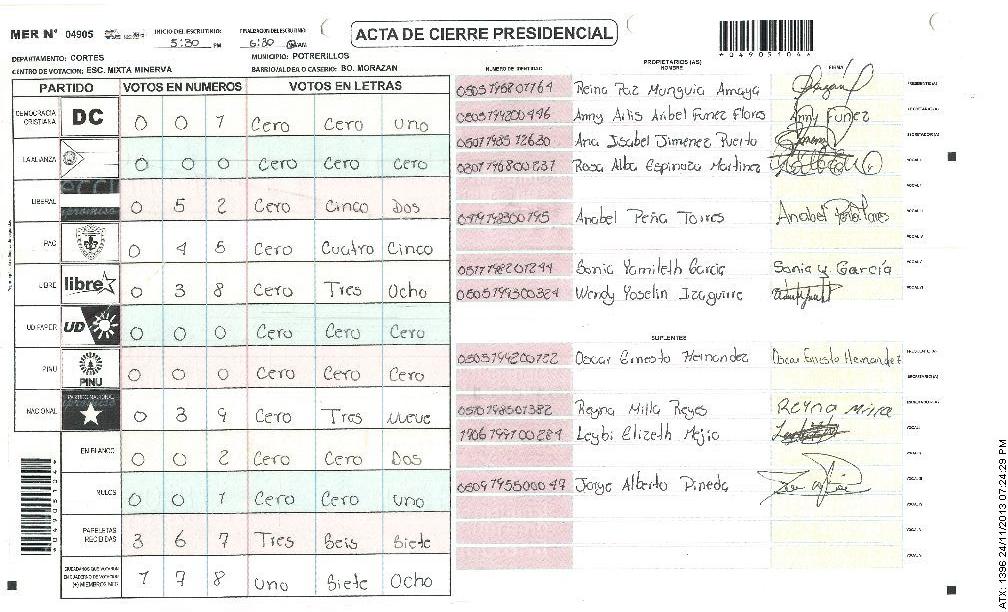 MER Nº 04905
INICIO DEL ESCRUTINIO: 5:30 PM
FINALIZACION DEL ESCRUTINIO: 6:30
ACTA DE CIERRE PRESIDENCIAL
*04905104*
DEPARTAMENTO: CORTES
MUNICIPIO: POTRERILLOS
CENTRO DE VOTACION: ESC. MIXTA MINERVA
BARRIO/ALDEA O CASERIO: BO. MORAZAN
PARTIDO VOTOS EN NUMEROS VOTOS EN LETRAS
DEMOCRACIA CRISTIANA DC 0 0 1 Cero Cero uno
LA ALIANZA 0 0 0 Cero Cero Cero
LIBERAL 0 5 2 Cero Cinco Dos
PAC 0 4 5 Cero Cuatro Cinco
LIBRE libre 0 3 8 Cero Tres Ocho
UD FAPER UD 0 0 0 Cero Cero Cero
PINU PINU 0 0 0 Cero Cero Cero
NACIONAL PARTIDO NACIONAL 0 3 9 Cero Tres nueve
EN BLANCO 0 0 2 Cero Cero Dos
NULOS 0 0 1 Cero Cero uno
PAPELETAS RECIBIDAS 3 6 7 Tres Seis Siete
CIUDADANOS QUE VOTARON EN CUADERNO DE VOTACION (+) MIEMBROS MER 1 7 8 uno Siete Ocho
*04905104*
NUMERO DE IDENTIDAD
PROPIETARIOS (AS)
NOMBRE
FIRMA
Reina Paz Munguia Amaya
PRESIDENTE(A)
Anny Arlis Aribel Funez Flores Anny Funez
SECRETARIO(A)
Ana Isabel Jimenez Puerto
ESCRUTADOR(A)
Rosa Alba Espinoza Martinez
VOCAL I
Anabel Peña Torres Anabel Peña Torres
Sonia Yamileth Garcia Sonia Y García
Wendy Yoselin Izaguirre
SUPLENTES
Oscar Ernesto Hernandez Oscar Ernesto Hernandez
PRESIDENTE(A)
SECRETARIO(A)
Reyna Milla Reyes
Leybi Elizeth Mejio
Jorge Alberto Pineda
ATX: 1396 24/11/2013 07:24:29 PM